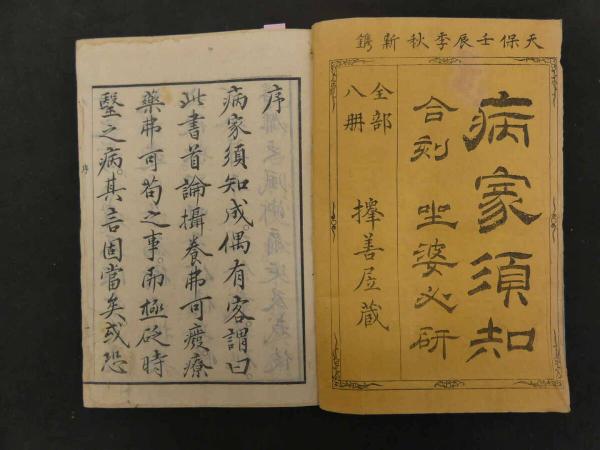 天保壬辰季秋新鐫
病家須知
合刻 坐婆必研
全部
八冊
擇善居蔵
序
病家須知成。偶有客謂曰
此書首論攝養弗可廢療
藥弗可苟之事。而極砭時
毉之病。其言固當矣。或恐
序